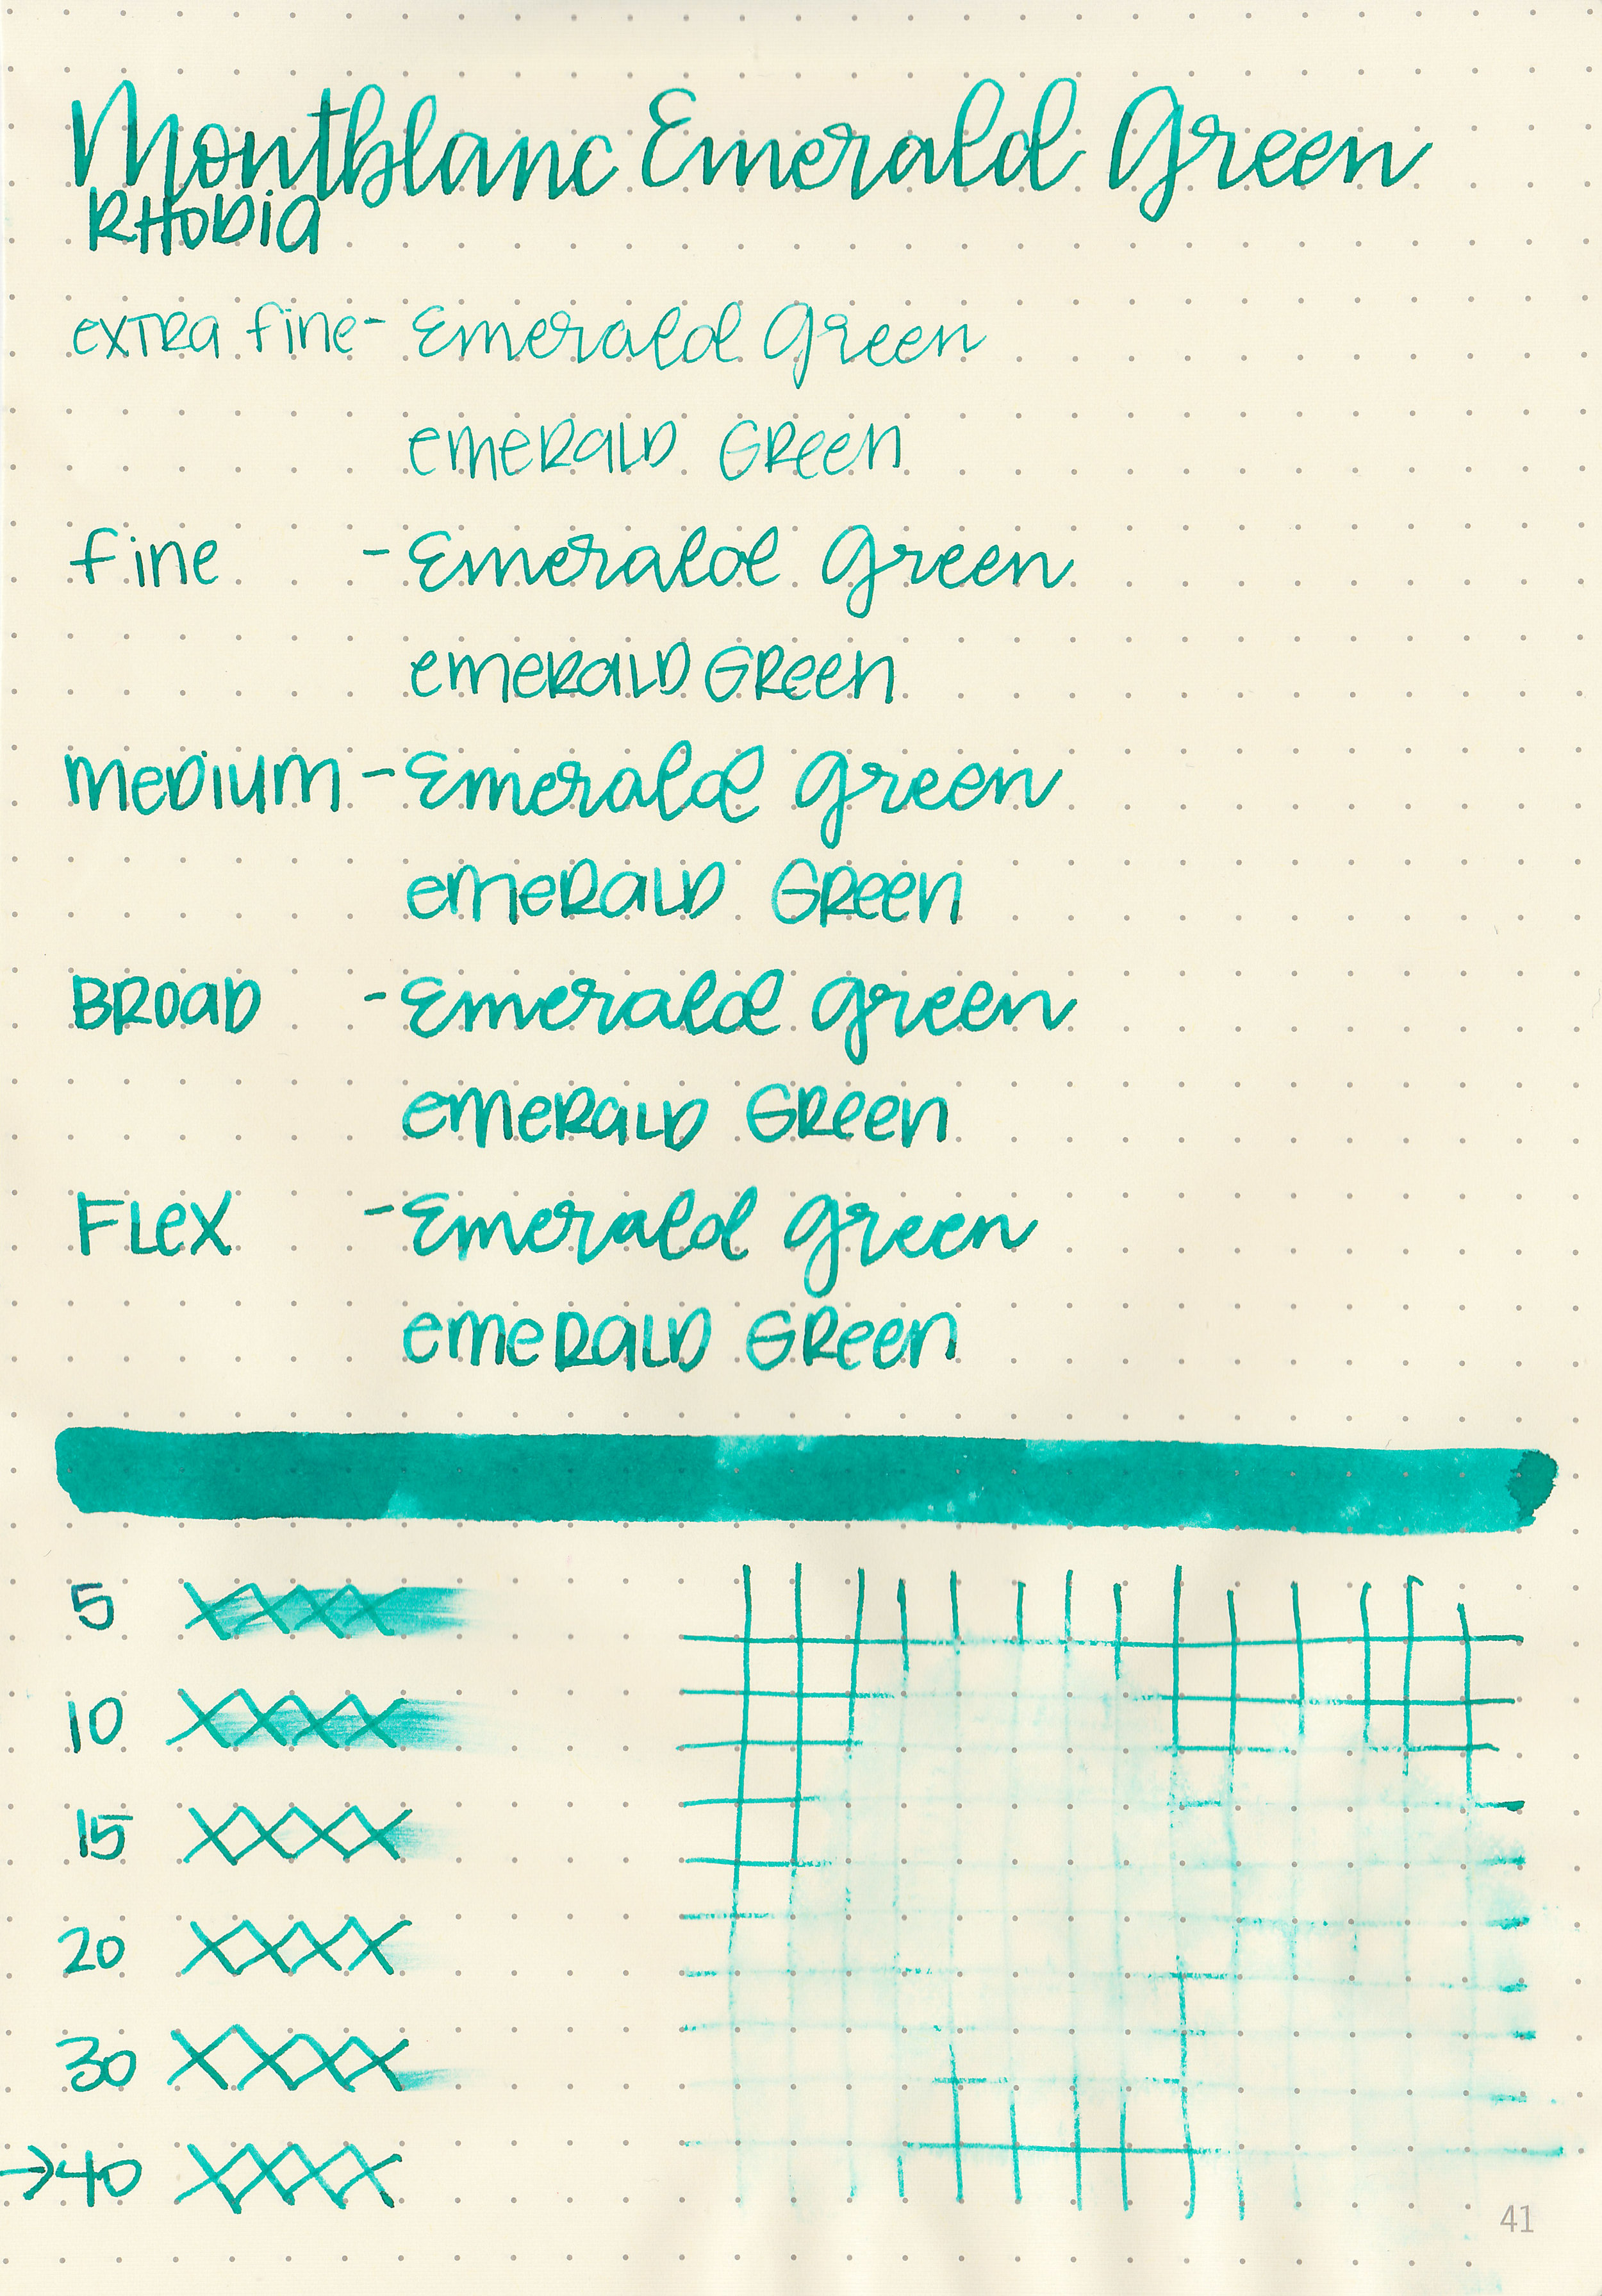 Montblanc Emerald Green
RHODIA
extra fine - Emerald Green
emerald Green
fine - Emerald Green
emerald Green
medium - Emerald Green
emerald Green
BROAD - Emerald Green
emerald Green
Flex - Emerald Green
emerald Green
5 XXXX
10 XXXX
15 XXXX
20 XXXX
30 XXXX
→40 XXXX
41